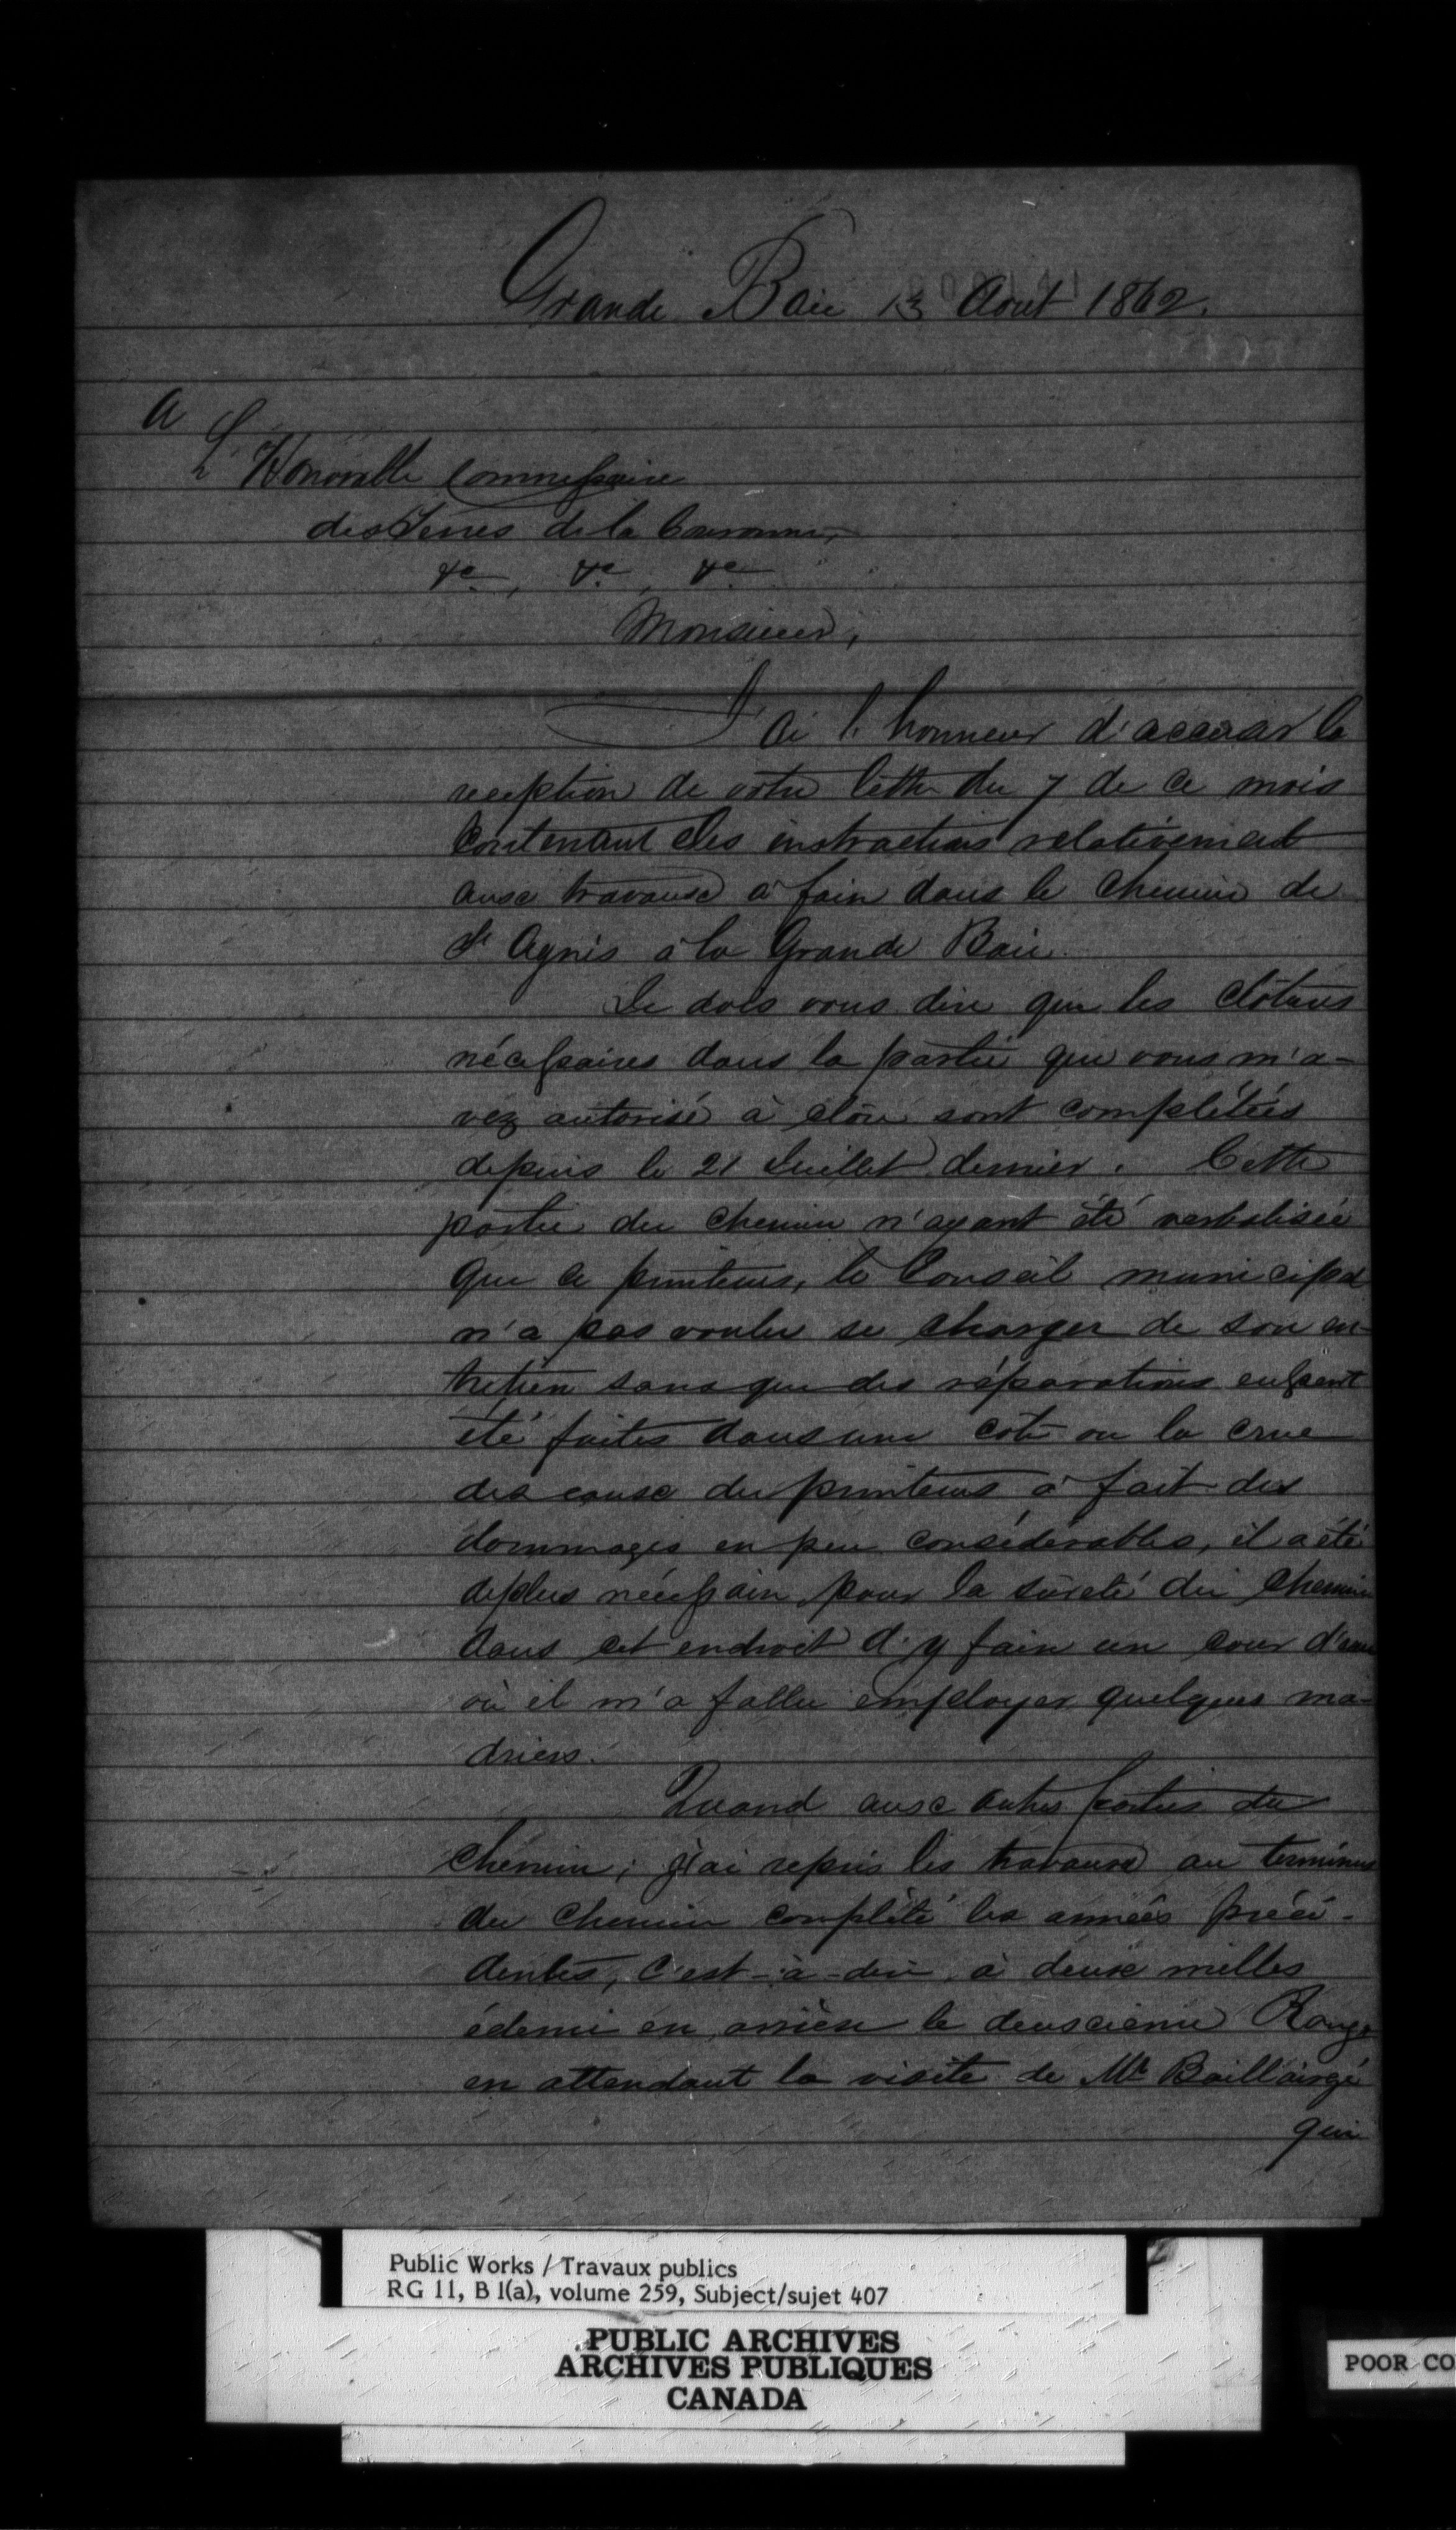 Grande Baie 13 Aout 1862.
A
L'Honorable Commissaire
des Terres de la Couronne,
&c, &c, &c
Monsieur,
J'ai l'honneur d'accuser la
reception de votre lettre du 7 de ce mois
contenant des instructions relativement
aux travaux à faire dans le chemin de
St Agnès à la Grande Baie.
Je dois vous dire que les clôtures
nécessaires dans la partie que vous m'a-
vez autorisé à clore sont complétées
depuis le 21 Juillet dernier. Cette
partie du chemin n'ayant été verbalisée
que ce printems, le Conseil municipal
n'a pas voulu se charger de son en-
tretien sans que des réparations eussent
été faites dans une côte ou la crue
des eaux du printems à fait des
dommages un peu considérables, il a été
deplus nécessaire pour la sûreté du chemin
dans cet endroit d'y faire un cour d'eau
où il m'a fallu employer quelques ma-
driers.
Quand aux autres parties du
chemin; j'ai repris les travaux au terminus
du chemin complété les années précé-
dentes, c'est-à-dire à deux milles
édemi en arrière le deuxième Rang
en attendant la visite de Mr Baillairgé
qui
Public Works / Travaux publics
RG 11, B 1(a), volume 259, Subject/sujet 407
PUBLIC ARCHIVES
ARCHIVES PUBLIQUES
CANADA
POOR CO